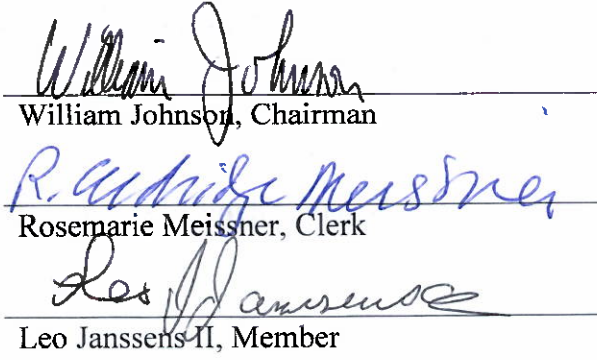 William Johnson
William Johnson, Chairman
R. Aldridge Meissner
Rosemarie Meissner, Clerk
Leo J Janssens
Leo Janssens II, Member